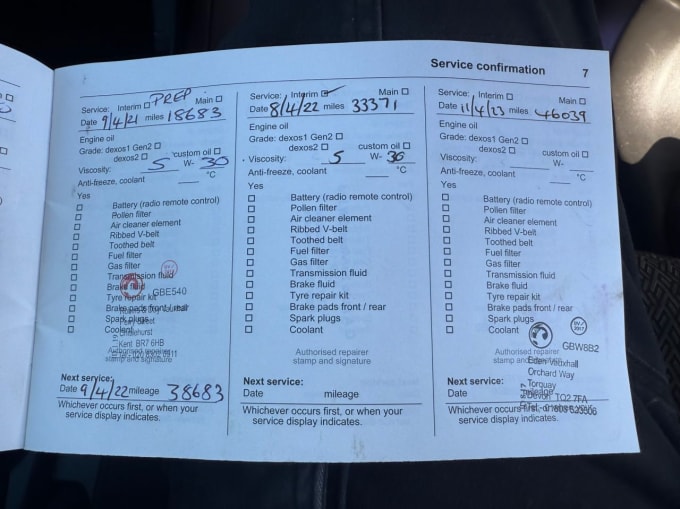 Service confirmation 7
Service: Interim ☐ PREP Main ☐
Date 9/4/21 miles 18683
Engine oil
Grade: dexos1 Gen2 ☐
dexos2 ☐ custom oil ☐
Viscosity: 5 W- 30
Anti-freeze, coolant ____ °C
Yes
☐ Battery (radio remote control)
☐ Pollen filter
☐ Air cleaner element
☐ Ribbed V-belt
☐ Toothed belt
☐ Fuel filter
☐ Gas filter
☐ Transmission fluid
☐ Brake fluid
GBE540
☐ Tyre repair kit
☐ Brake pads front / rear
☐ Spark plugs
☐ Coolant
Kent BR7 6HB
Authorised repairer
stamp and signature
Next service:
Date 9/4/22 mileage 38683
Whichever occurs first, or when your
service display indicates.
Service: Interim ☑ Main ☐
Date 8/4/22 miles 33371
Engine oil
Grade: dexos1 Gen2 ☐
dexos2 ☐ custom oil ☐
Viscosity: 5 W- 30
Anti-freeze, coolant ____ °C
Yes
☐ Battery (radio remote control)
☐ Pollen filter
☐ Air cleaner element
☐ Ribbed V-belt
☐ Toothed belt
☐ Fuel filter
☐ Gas filter
☐ Transmission fluid
☐ Brake fluid
☐ Tyre repair kit
☐ Brake pads front / rear
☐ Spark plugs
☐ Coolant
Authorised repairer
stamp and signature
Next service:
Date mileage
Whichever occurs first, or when your
service display indicates.
Service: Interim ☐ Main ☐
Date 11/4/23 miles 46039
Engine oil
Grade: dexos1 Gen2 ☐
dexos2 ☐ custom oil ☐
Viscosity: ____ W- ____
Anti-freeze, coolant ____ °C
Yes
☐ Battery (radio remote control)
☐ Pollen filter
☐ Air cleaner element
☐ Ribbed V-belt
☐ Toothed belt
☐ Fuel filter
☐ Gas filter
☐ Transmission fluid
☐ Brake fluid
☐ Tyre repair kit
☐ Brake pads front / rear
☐ Spark plugs
☐ Coolant
GBW8B2
Authorised repairer
stamp and signature
Eden Vauxhall
Orchard Way
Torquay
Devon TQ2 7FA
Next service:
Date mileage
Whichever occurs first, or when your
service display indicates.